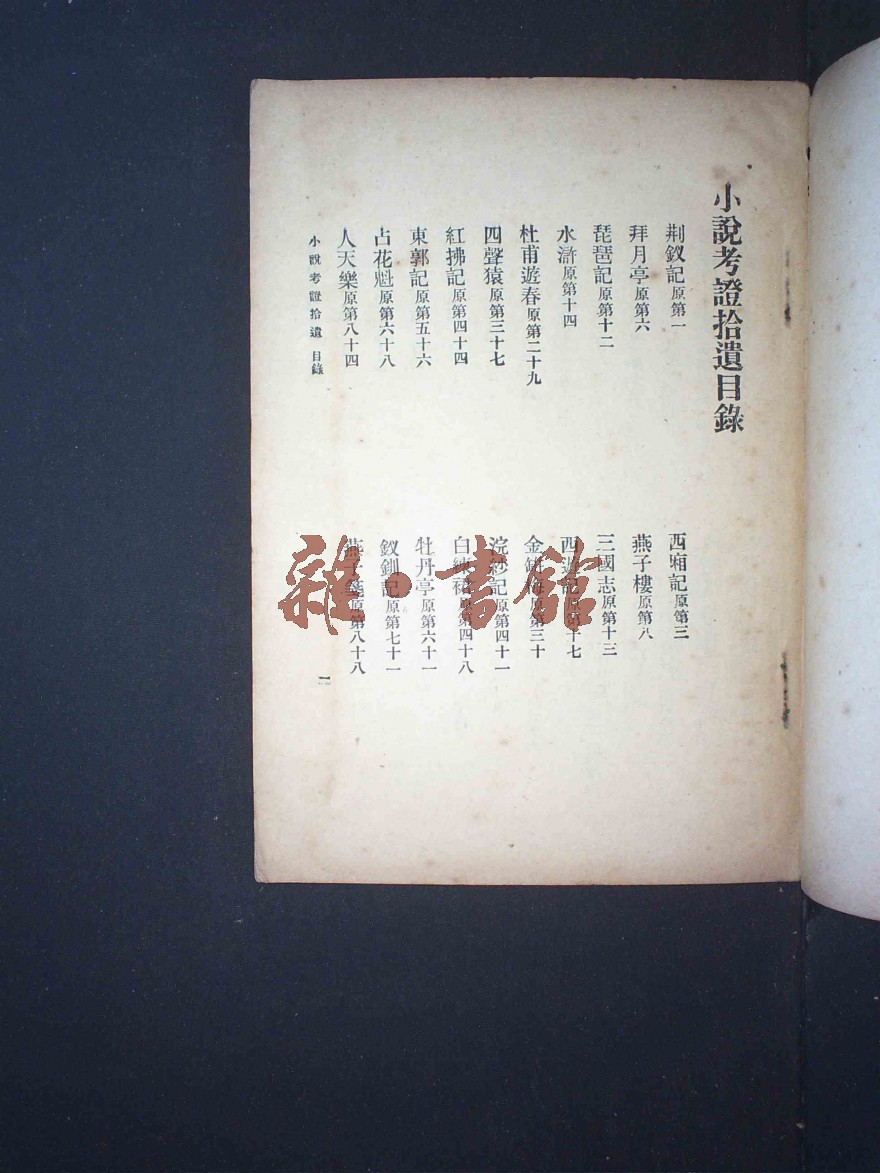 小說考證拾遺目錄
荆釵記原第一 西廂記原第三
拜月亭原第六 燕子樓原第八
琵琶記原第十二 三國志原第十三
水滸原第十四 西遊記原第十七
杜甫遊春原第二十九 金缾梅原第三十
四聲猿原第三十七 浣紗記原第四十一
紅拂記原第四十四 白練裙原第四十八
東郭記原第五十六 牡丹亭原第六十一
占花魁原第六十八 釵釧記原第七十一
人天樂原第八十四 燕子箋原第八十八
小說考證拾遺 目錄 一
雜·書館